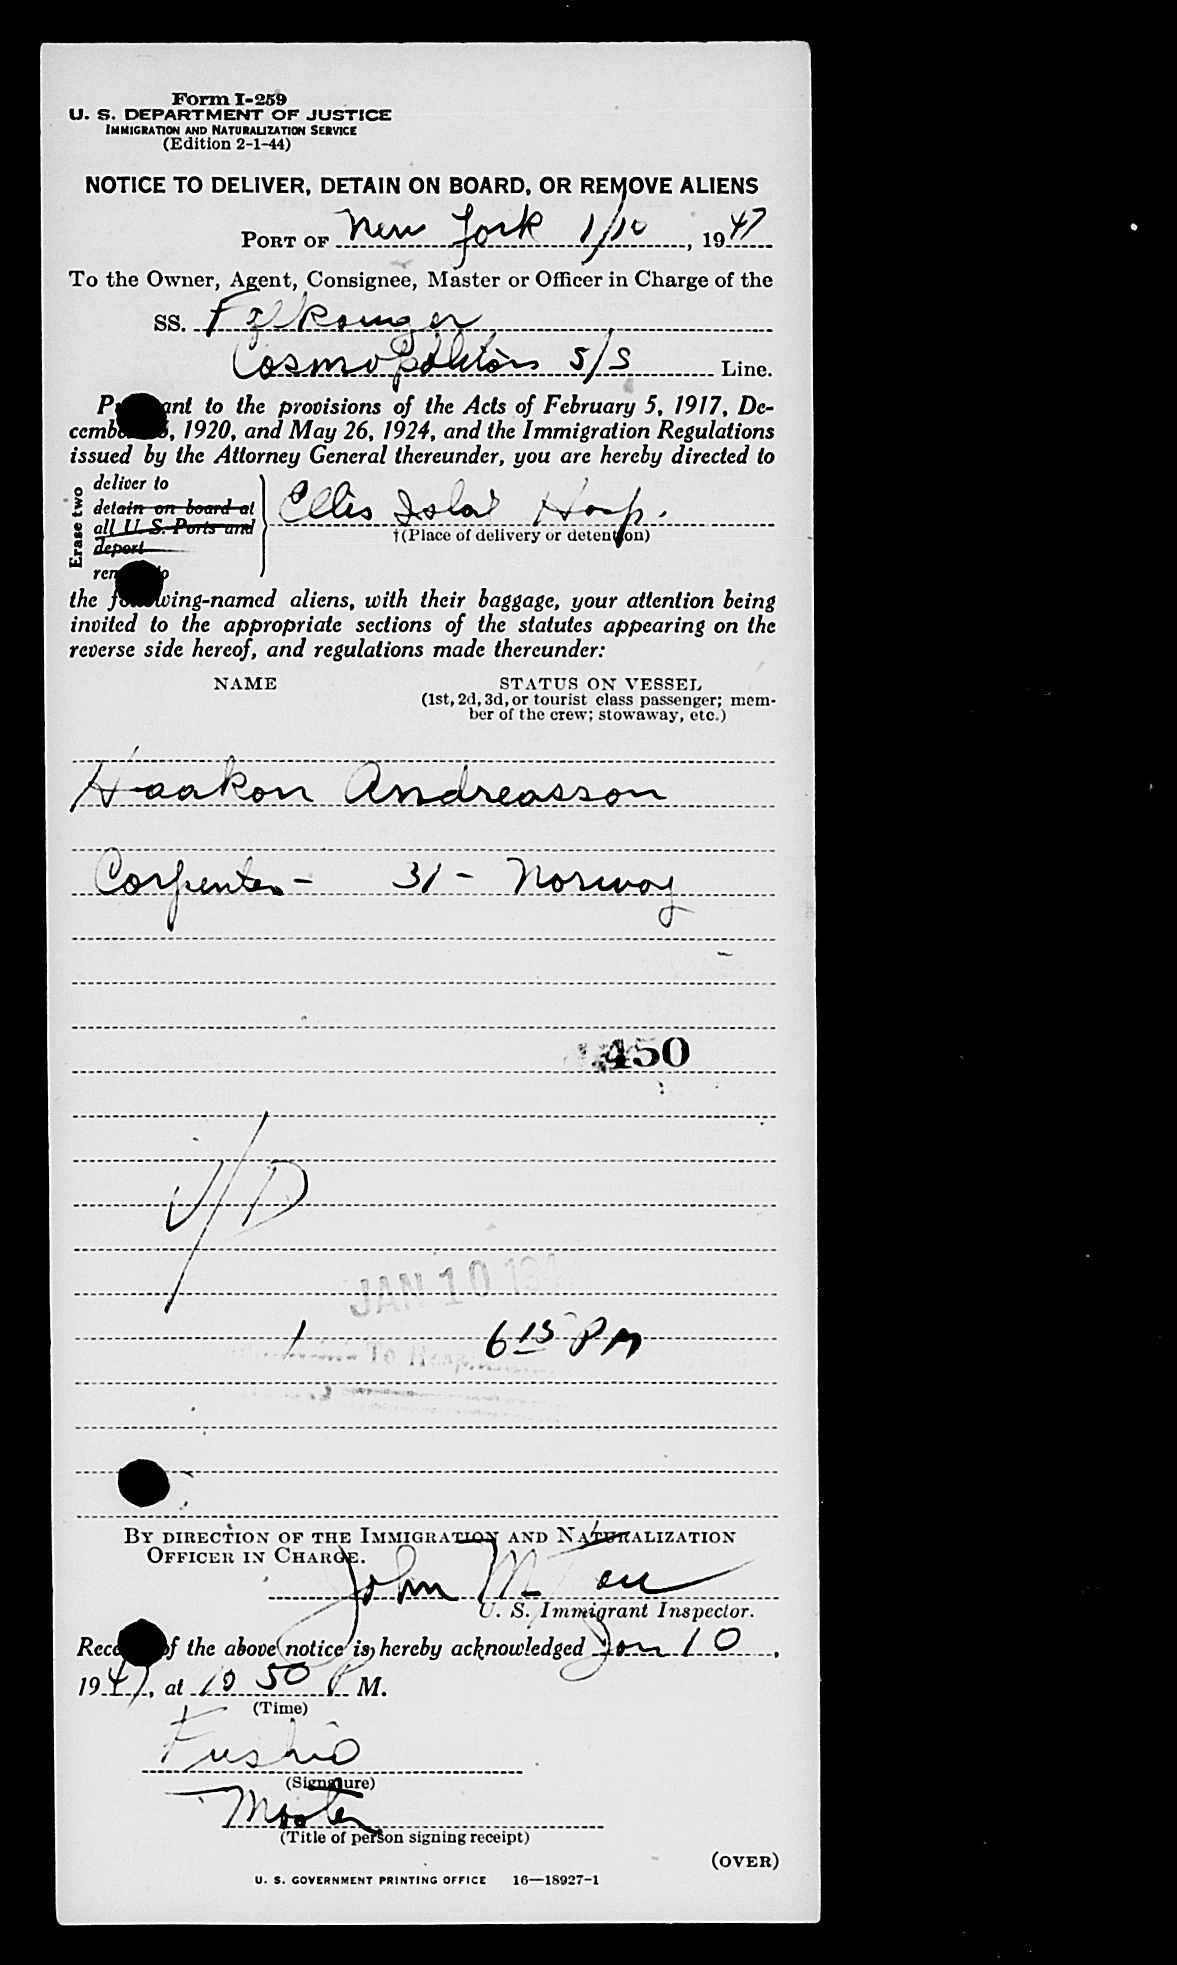 Form I-259
U. S. DEPARTMENT OF JUSTICE
IMMIGRATION AND NATURALIZATION SERVICE
(Edition 2-1-44)
NOTICE TO DELIVER, DETAIN ON BOARD, OR REMOVE ALIENS
PORT OF New York 1/10, 1947
To the Owner, Agent, Consignee, Master or Officer in Charge of the
SS.
Cosmopolitan S/S Line.
P ant to the provisions of the Acts of February 5, 1917, De-
cemb , 1920, and May 26, 1924, and the Immigration Regulations
issued by the Attorney General thereunder, you are hereby directed to
Erase two
deliver to
detain on board at
all U. S. Ports and
deport
rem to
Ellis Islad Hosp.
†(Place of delivery or detention)
the following-named aliens, with their baggage, your attention being
invited to the appropriate sections of the statutes appearing on the
reverse side hereof, and regulations made thereunder:
NAME STATUS ON VESSEL
(1st, 2d, 3d, or tourist class passenger; mem-
ber of the crew; stowaway, etc.)
Haakon Andreasson
Carpenter - 31 - Norway
450
JAN 10 194
1 6 15 PM
To Hosp.
BY DIRECTION OF THE IMMIGRATION AND NATURALIZATION
OFFICER IN CHARGE.
John M.
U. S. Immigrant Inspector.
Rece of the above notice is hereby acknowledged Jan 10,
1947, at 10 50 P M.
(Time)
(Signature)
Master
(Title of person signing receipt)
(OVER)
U. S. GOVERNMENT PRINTING OFFICE 16—18927-1